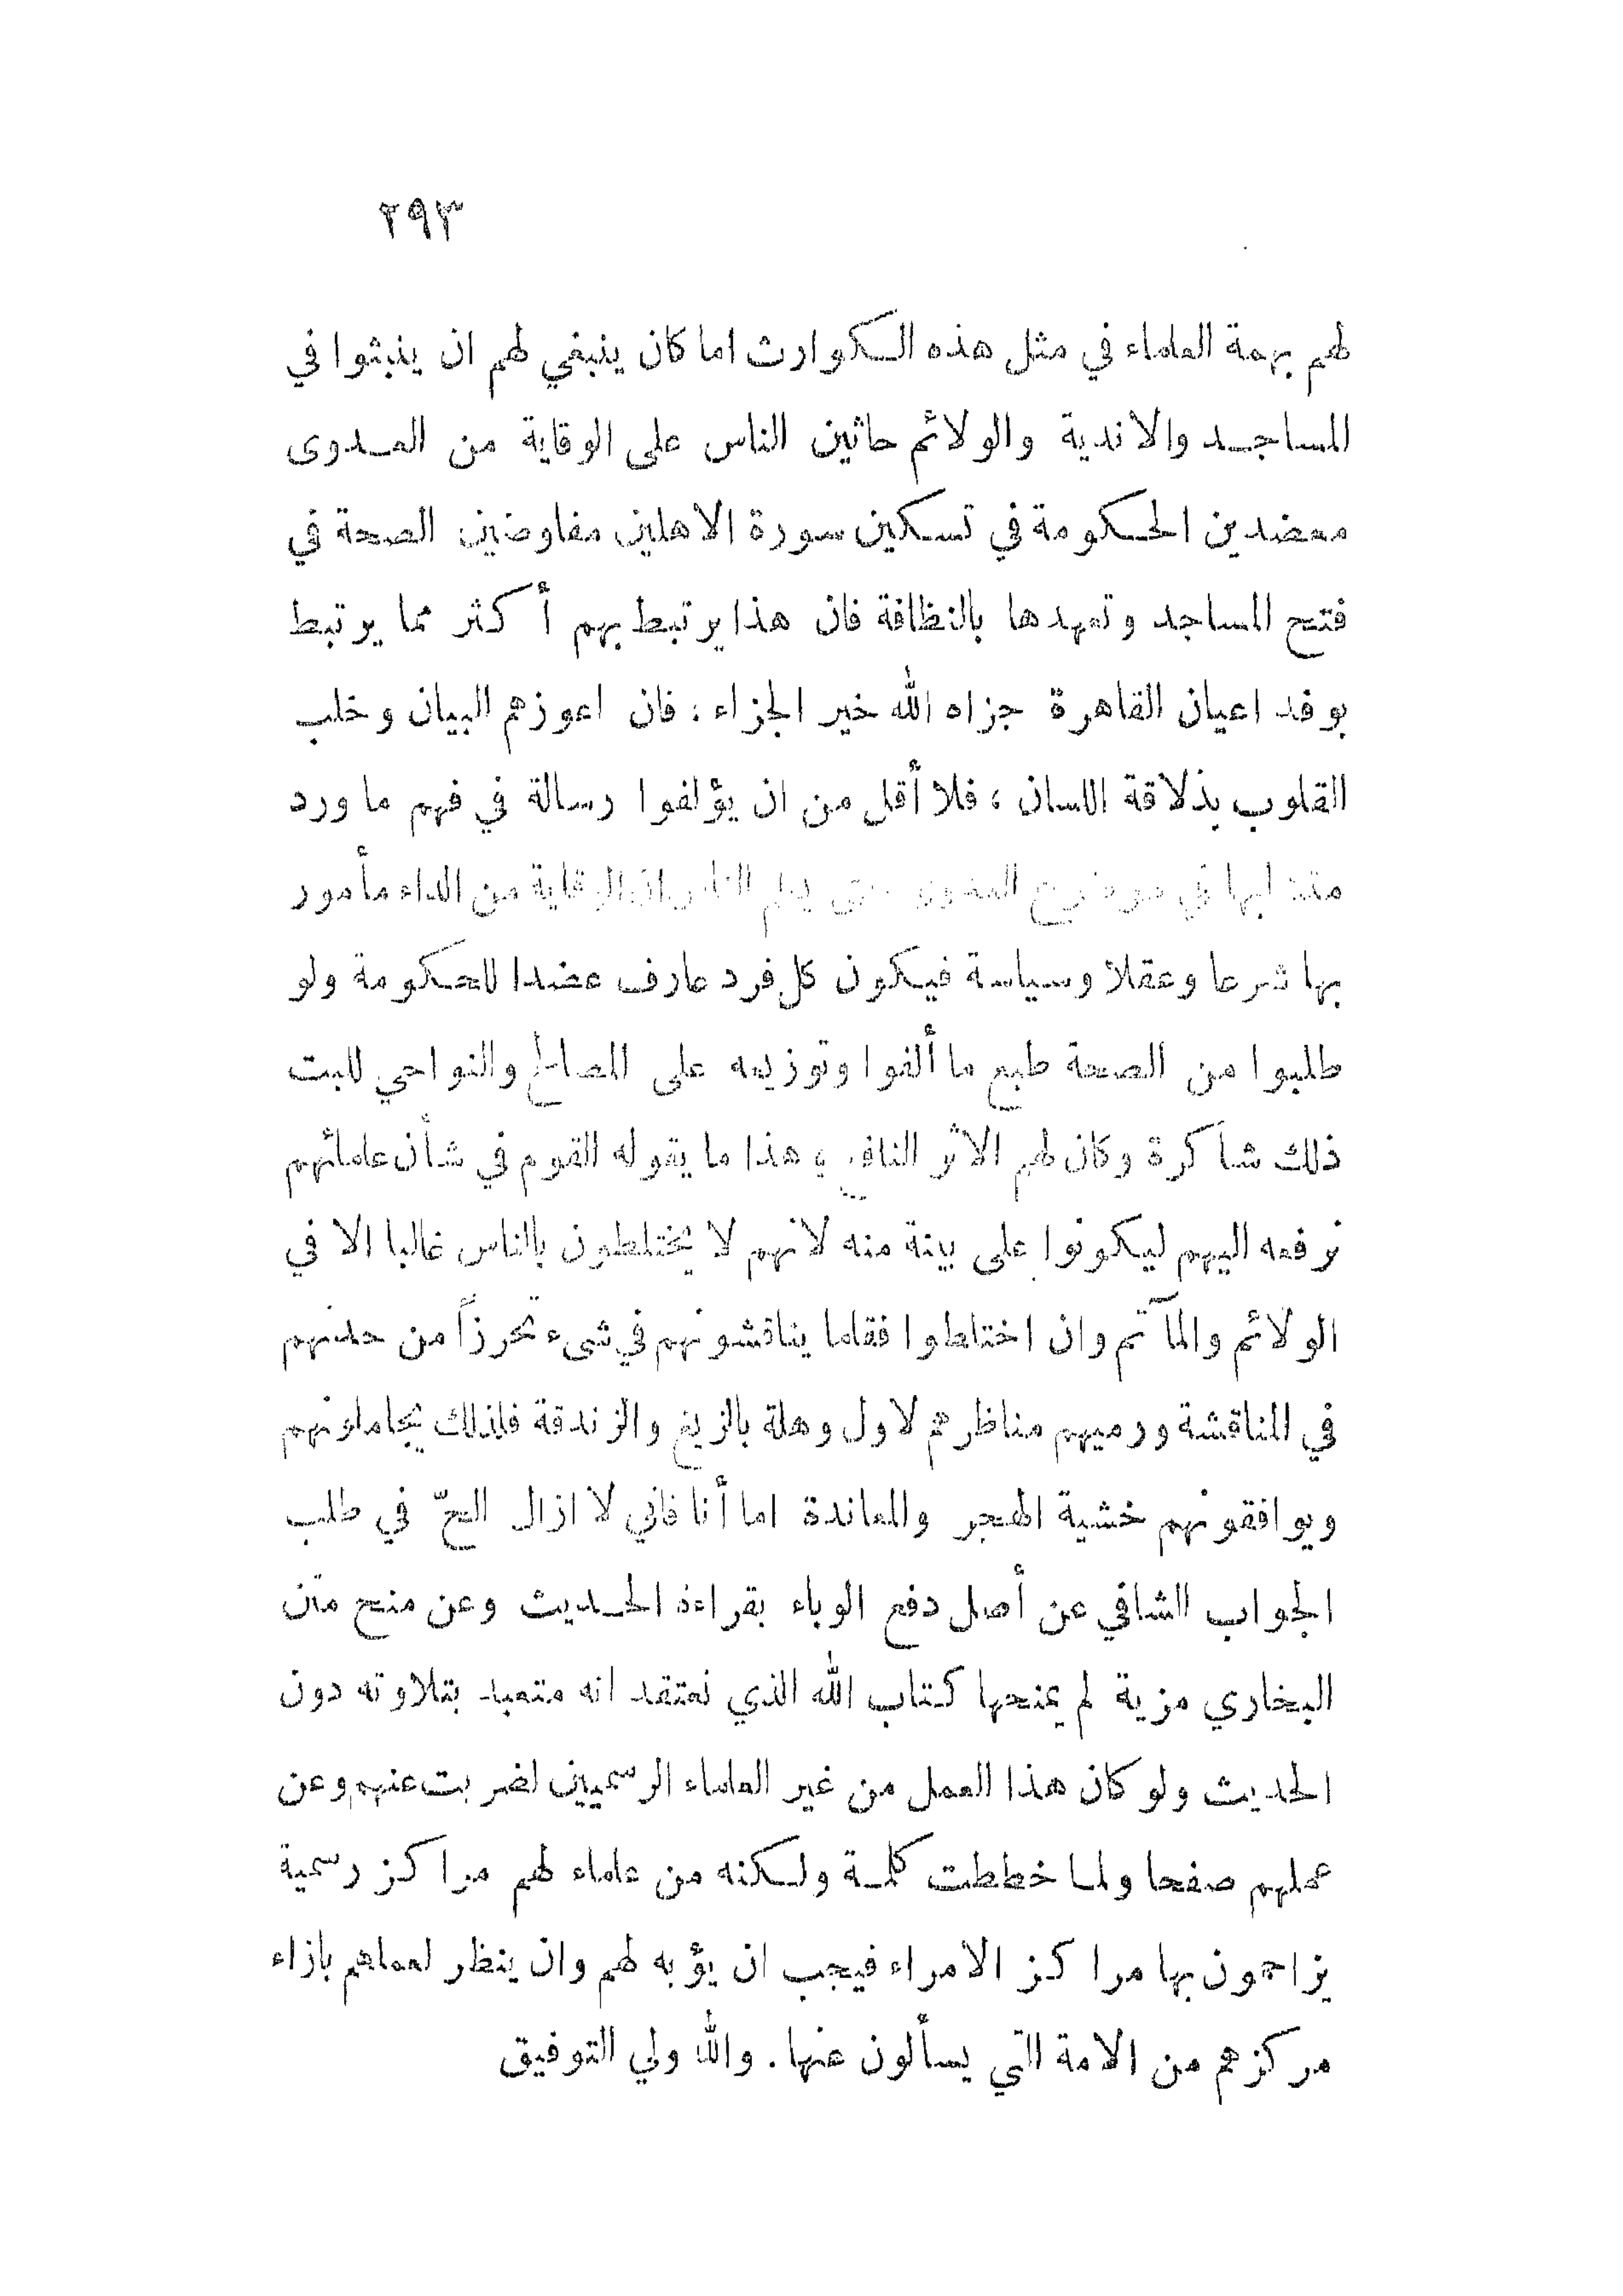 ٢٩٣
لهم بهمة العلماء في مثل هذه الكوارث اما كان ينبغي لهم ان ينبثوا في
المساجد والاندية والولائم حاثين الناس على الوقاية من العدوى
معضدين الحكومة في تسكين سورة الاهلين مفاوضين الصحة في
فتح المساجد وتعهدها بالنظافة فان هذا يرتبط بهم أكثر مما يرتبط
بوفد اعيان القاهرة جزاه الله خير الجزاء : فان اعوزهم البيان وخلب
القلوب بذلاقة اللسان ، فلا أقل من ان يؤلفوا رسالة في فهم ما ورد
متشابها في موضوع العدوى حتى يعلم الناس ان الوقاية من الداء مأمور
بها شرعا وعقلا وسياسة فيكون كل فرد عارف عضدا للحكومة ولو
طلبوا من الصحة طبع ما ألفوا وتوزيعه على المصالح والنواحي للبت
ذلك شاكرة وكان لهم الاثر النافع ، هذا ما يقوله القوم في شأن علمائهم
نرفعه اليهم ليكونوا على بينة منه لانهم لا يختلطون بالناس غالبا الا في
الولائم والمآتم وان اختلطوا فقلما يناقشونهم في شىء تحرزاً من حدتهم
في المناقشة ورميهم مناظرهم لاول وهلة بالزيغ والزندقة فلذلك يجاملونهم
ويوافقونهم خشية الهجر والمعاندة اما أنا فاني لا ازال الحّ في طلب
الجواب الشافي عن أصل دفع الوباء بقراءة الحديث وعن منح متن
البخاري مزية لم يمنحها كتاب الله الذي نعتقد انه متعبد بتلاوته دون
الحديث ولو كان هذا العمل من غير العلماء الرسميين لضربت عنهم وعن
عملهم صفحا ولما خططت كلمة ولكنه من علماء لهم مراكز رسمية
يزاحمون بها مراكز الامراء فيجب ان يؤبه لهم وان ينظر لعملهم بازاء
مركزهم من الامة التي يسألون عنها . والله ولي التوفيق